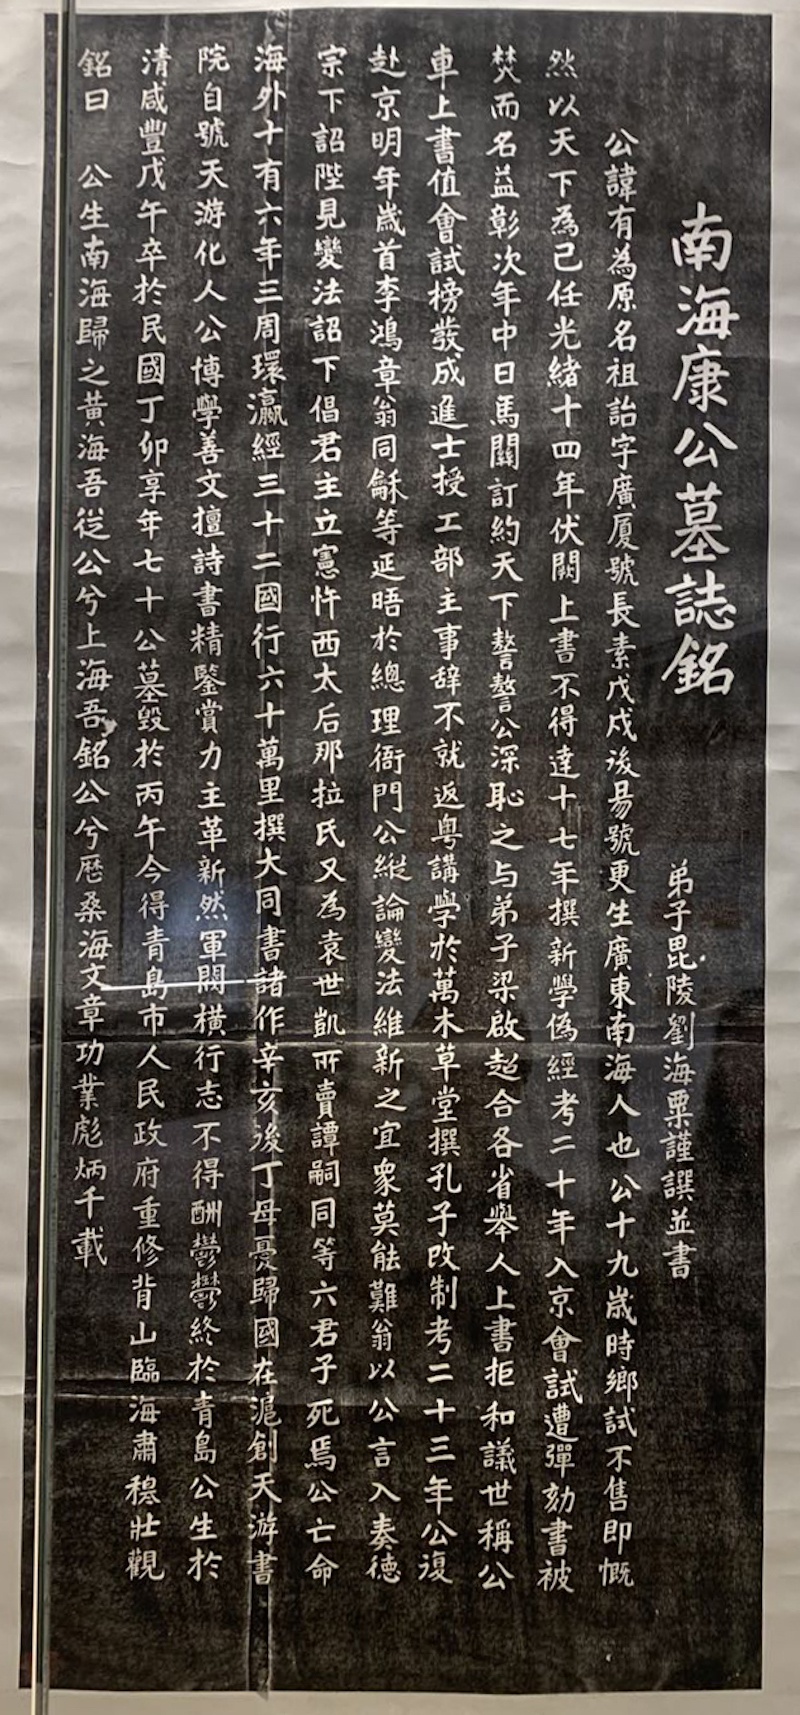 南海康公墓誌銘
弟子毘陵劉海粟謹譔並書
公諱有為原名祖詒字廣厦號長素戊戌後易號更生廣東南海人也公十九歲時鄉試不售即慨
然以天下為己任光緒十四年伏闕上書不得達十七年撰新學偽經考二十年入京會試遭彈劾書被
焚而名益彰次年中日馬關訂約天下嗸嗸公深恥之与弟子梁啟超合各省舉人上書拒和議世稱公
車上書值會試榜發成進士授工部主事辞不就返粵講學於萬木草堂撰孔子改制考二十三年公復
赴京明年歲首李鴻章翁同龢等延晤於總理衙門公縱論變法維新之宜衆莫能難翁以公言入奏德
宗下詔陛見變法詔下倡君主立憲忤西太后那拉氏又為袁世凱所賣譚嗣同等六君子死焉公亡命
海外十有六年三周環瀛經三十二國行六十萬里撰大同書諸作辛亥後丁母憂歸國在滬創天游書
院自號天游化人公博學善文擅詩書精鑒賞力主革新然軍閥橫行志不得酬鬱鬱終於青島公生於
清咸豐戊午卒於民國丁卯享年七十公墓毀於丙午今得青島市人民政府重修背山臨海肅穆壯觀
銘曰 公生南海歸之黃海吾從公兮上海吾銘公兮歷桑海文章功業彪炳千載